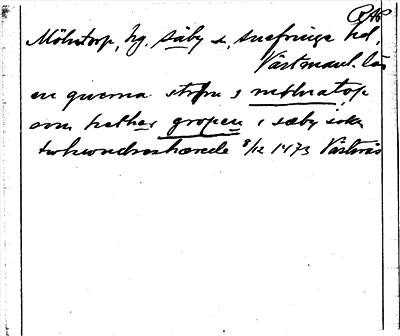 RAP
Möluntorp, hg. Säby s., Snefringe hd,
Västmanl. län
en quærna strøm i mølnatop
som hether gropen i sæby sokn
twhwndræshærede 8/12 1473 Västerås